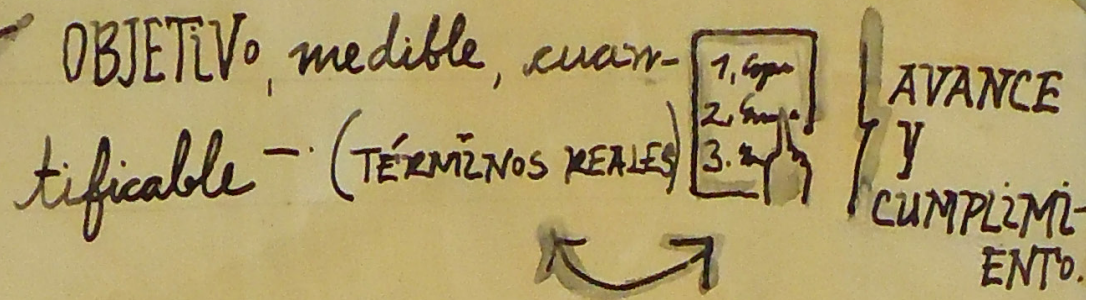 OBJETIVO, medible, cuan-
tificable - . (TÉRMINOS REALES)
1,
2.
3.
AVANCE
Y
CUMPLIMI-
ENTO.